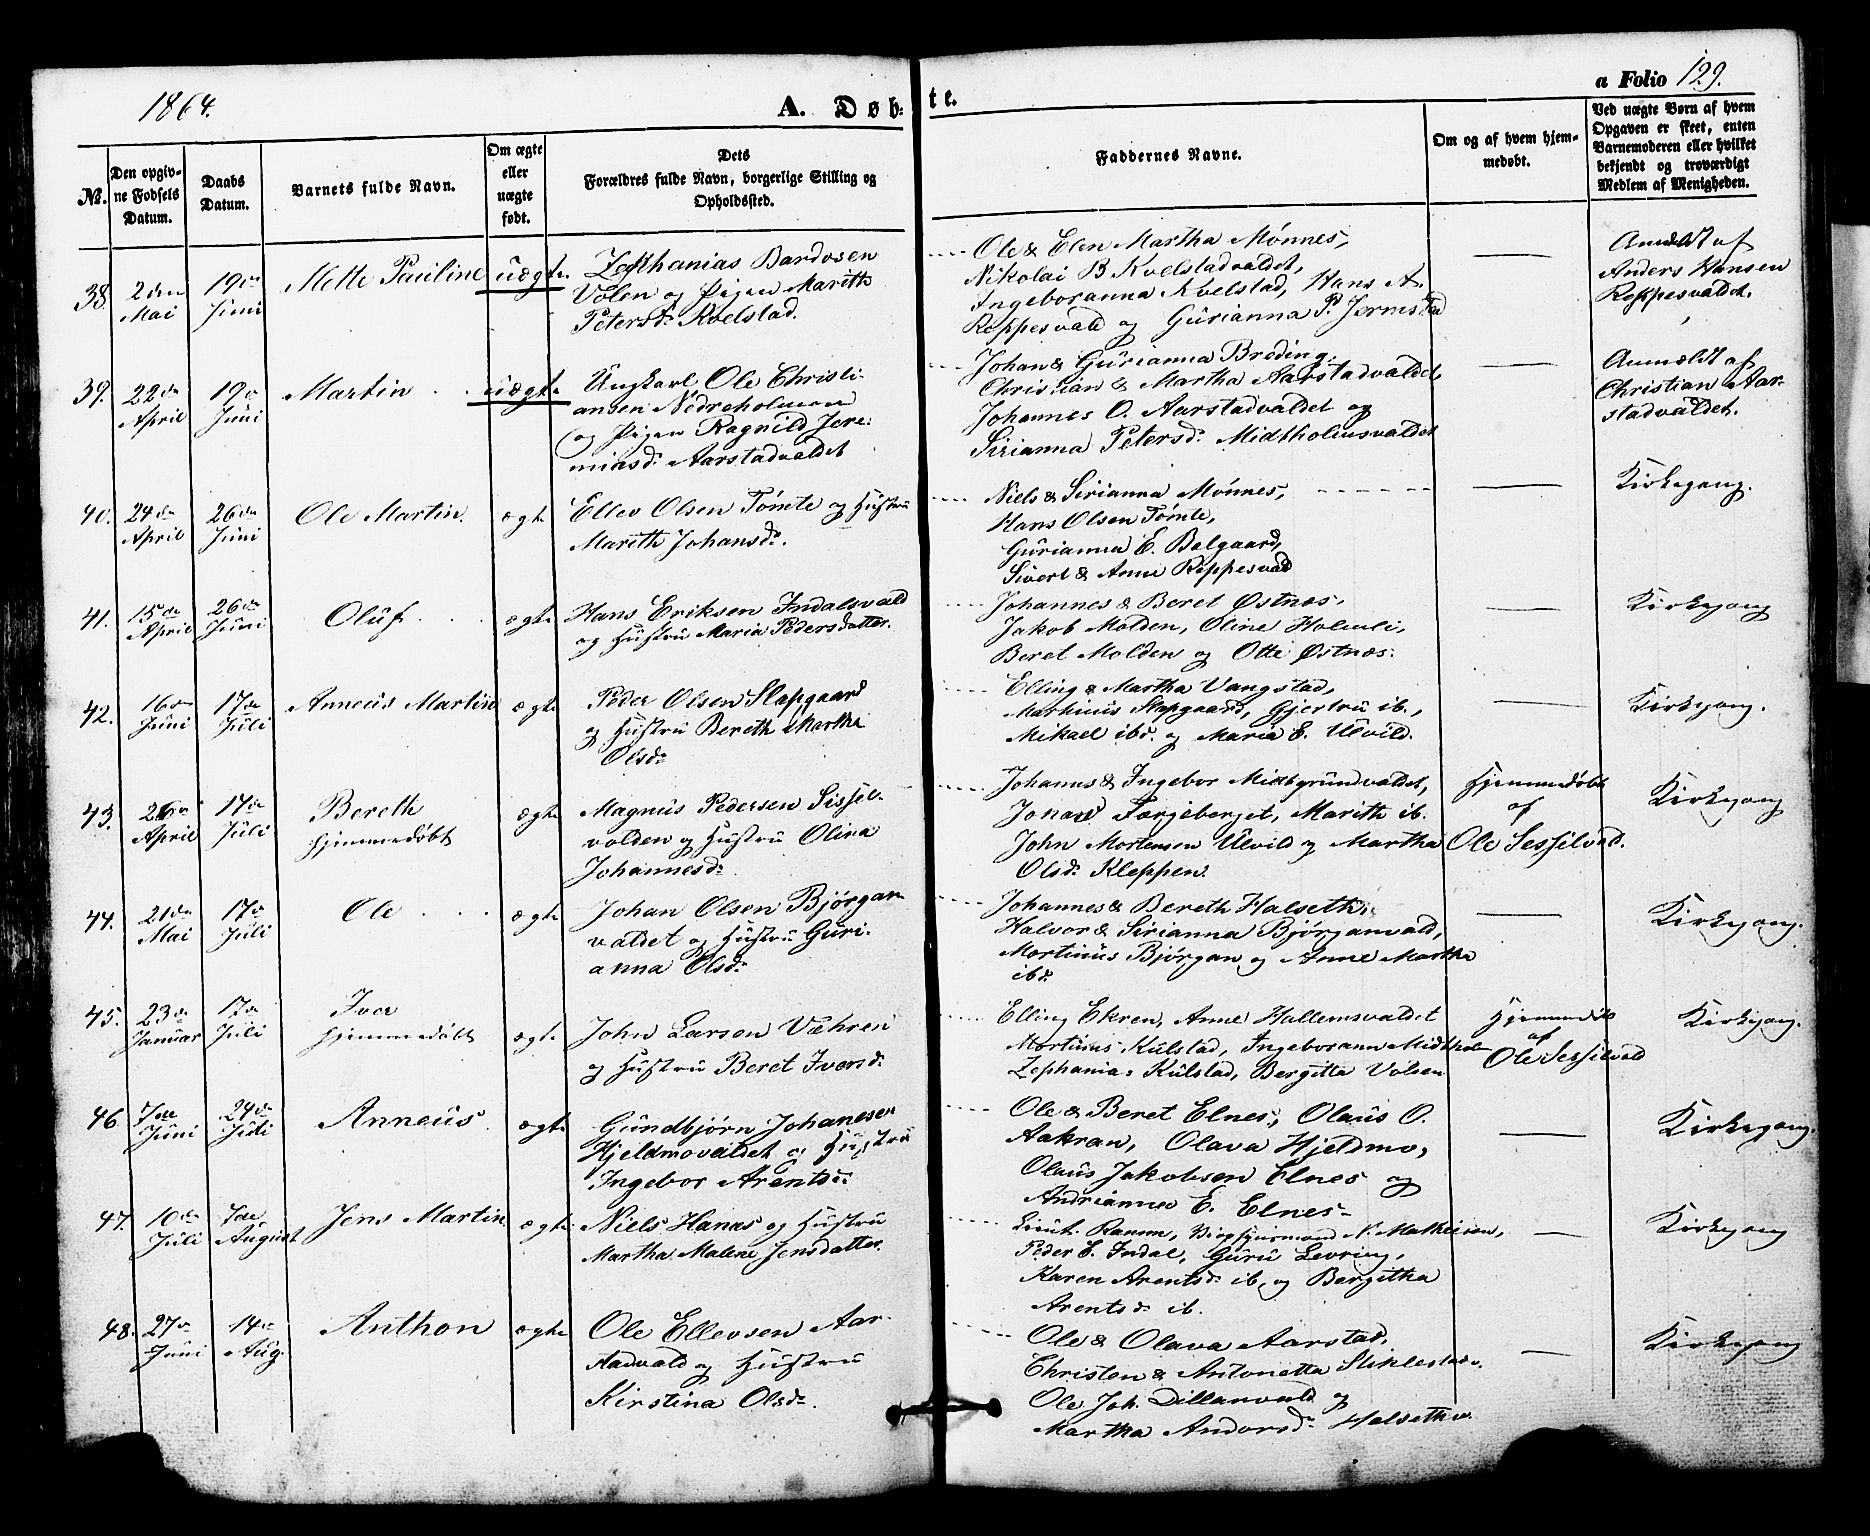 1864.
A. Døb-
te.
a Folio 129.
No.
Den opgiv-
ne Fødsels
Datum.
Daabs
Datum.
Barnets fulde Navn.
Om ægte
eller
uægte
født.
Dets
Forældres fulde Navn, borgerlige Stilling og
Opholdssted.
Faddernes Navne.
Om og af hvem hjem-
medøbt.
Ved uægte Børn af hvem
Opgaven er skeet, enten
Barnemoderen eller hvilket
bekjendt og troværdigt
Medlem af Menigheden.
38.
2den
Mai
19de
Juni
Mette Pauline
uægte
Zephanias Bardosen
Volen og Pigen Marith
Petersd. Kvelstad.
Ole & Elen Martha Mønnes,
Nikolai B Kvelstadvaldet,
Ingeboranna Kvelstad, Hans A.
Reppesvald og Gurianna P. Jermstad
Anmeldt af
Anders Hansen
Reppesvaldet.
39.
22de
April
19de
Juni
Martin
uægte
Ungkarl Ole Christi-
ansen Nedreholmen
og Pigen Ragnild Jere-
miasd. Aarstadvaldet
Johan & Gurianna Breding,
Christian & Martha Aarstadvaldet,
Johannes O. Aarstadvaldet og
Sirianna Petersd. Midtholmsvaldet
Anmeldt af
Christian Aar-
stadvaldet.
40.
24de
April
26de
Juni
Ole Martin.
ægte
Ellev Olsen Tømte og Hustru
Mareth Johansd.
Niels & Sirianna Mønnes,
Hans Olsen Tømte,
Gurianna E. Balgaard,
Sivert & Anne Reppesvald
Kirkegang.
41.
15de
April
26de
Juni
Oluf
ægte
Hans Eriksen Indalsvald
og Hustru Maria Pedersdatter.
Johannes & Beret Østnæs,
Jakob Molden, Oline Holmli,
Beret Molden og Otte Østnæs.
Kirkegang
42.
16de
Juni
17de
Juli
Anneus Martin
ægte
Peder Olsen Slapgaard
og Hustru Bereth Martha
Olsd.
Elling & Martha Vangstad,
Martinus Slapgaard, Gjertru ib.,
Mikael ibd. og Maria E. Ulvild.
Kirkegang.
43.
26de
April
17de
Juli
Bereth
hjemmedøbt
ægte
Magnus Pedersen Sissel-
volden og Hustru Olina
Johannesd.
Johannes & Ingebor Midtgrundvaldet,
Jonas Færgeberget, Marith ib.
John Mortensen Ulvild og Martha
Olsd. Kleppen.
Hjemmedøbt
af
Ole Sesselvold.
Kirkegang
44.
21de
Mai
17de
Juli
Ole
ægte
Johan Olsen Bjørgan-
valdet og Hustru Guri-
anna Olsd.
Johannes & Bereth Halseth,
Halvor & Sirianna Bjørganvald,
Martinus Bjørgan og Anne Martha
ibd.
Kirkegang.
45.
23de
Januar
17de
Juli
Iver
hjemmedøbt
ægte
John Larsen Væhren
og Hustru Beret Iversd.
Elling Ekren, Anne Hallemsvaldet
Martinus Kulstad, Ingeboranne Midtholm
Zephanias Kulstad, Bergitta Volsen
Hjemmedøbt
af
Ole Sesselvold
Kirkegang.
46
7de
Juni
24de
Juli
Anneus
ægte
Gundbjørn Johanesen
Hjeldmovaldet og Hustru
Ingebor Arentsd.
Ole & Beret Elnes, Olaus O.
Aakran, Olava Hjeldmo,
Olaus Jakobsen Elnes og
Andrianna E. Elnes-
Kirkegang.
47.
10de
Juli
7de
August
Jens Martin
ægte
Niels Hanas og Hustru
Martha Malene Jensdatter
Leuit. Ramm, N. Mathiesen,
Peder E. Indal, Guru Levring,
Karen Arentsd. ib, og Bergitha
Arentsd. ib.
Kirkegang
48.
27de
Juni
14de
Aug.
Anthon
ægte
Ole Ellevsen Aar-
stadvald og Hustru
Kirstina Olsd.
Ole & Olava Aarstad,
Christen & Antonetta Stiklestadv.
Ole Joh. Dillanvald og
Martha Andersd. Halsethv.
Kirkegang